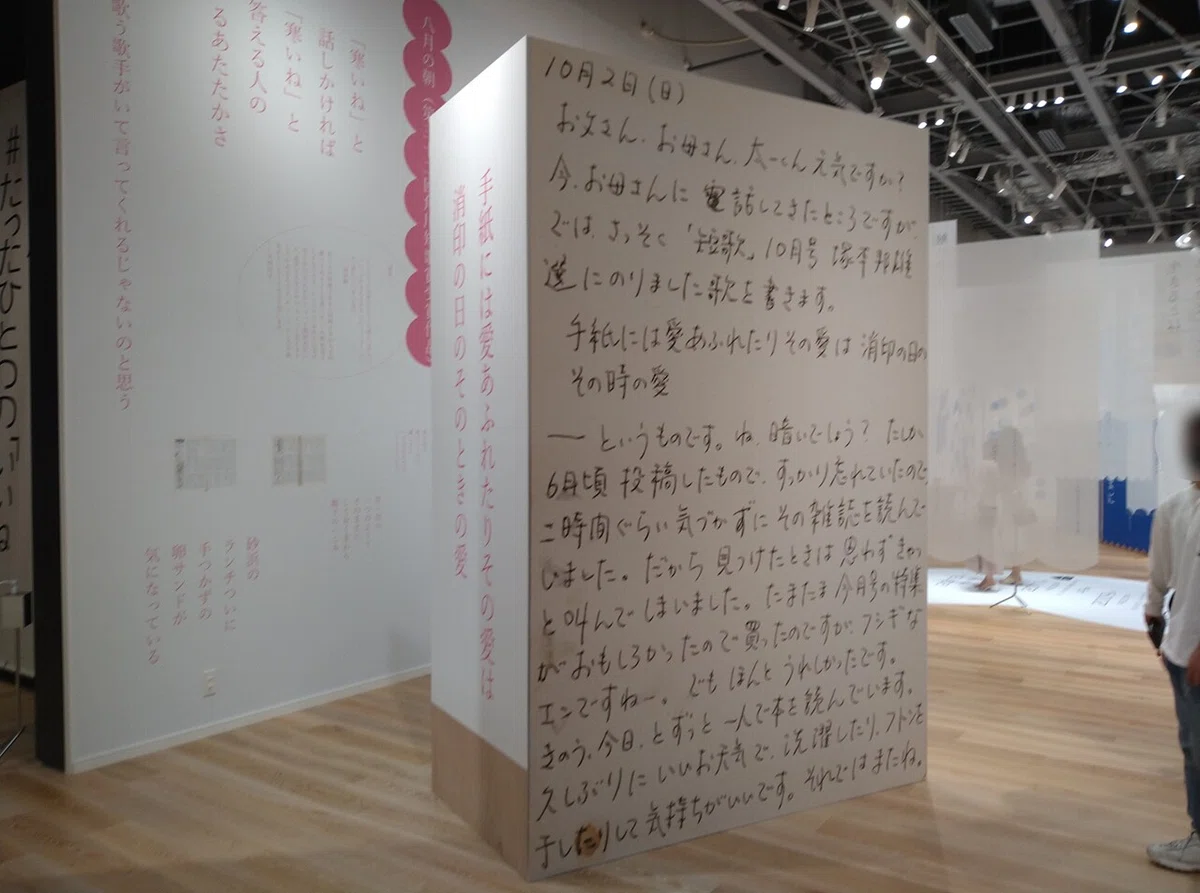 10月2日(日)
お父さん、お母さん、太一くん元気ですか?
今、お母さんに電話してきたところですが、
では、さっそく「短歌」10月号 塚本邦雄
選にのりました歌を書きます。
手紙には愛あふれたりその愛は 消印の日の
その時の愛
― というものです。ね、暗いでしょう? たしか
6月頃 投稿したもので、すっかり忘れていたので、
二時間ぐらい気づかずにその雑誌を読んで
いました。だから 見つけたときは 思わずきゃっ
と叫んでしまいました。たまたま今月号の特集
がおもしろかったので買ったのですが、フシギな
エンですねー。でも ほんと うれしかったです。
きのう、今日、とずっと一人で本を読んでいます。
久しぶりに いいお天気で、洗濯したり、フトンを
干したりして気持ちがいいです。それではまたね。
手紙には愛あふれたりその愛は
消印の日のそのときの愛
八月の朝
「寒いね」と
話しかければ
「寒いね」と
答える人の
いるあたたかさ
歌う歌手がいて言ってくれるじゃないのと思う
砂浜の
ランチついに
手つかずの
卵サンドが
気になっている
#たったひとつの「いいね